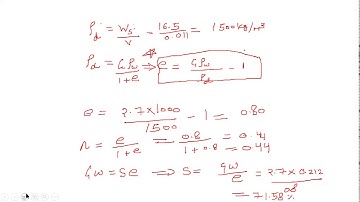 ρd = Ws/V = 16.5/0.011 = 1500 kg/m³
ρd = Gρw/1+e ⇒ e = Gρw/ρd - 1
e = 2.7×1000/1500 - 1 = 0.80
n = e/1+e = 0.8/1+0.8 = 0.44 = 0.44
Gw = Se ⇒ S = Gw/e = 2.7×0.212/0.8
= 71.58%